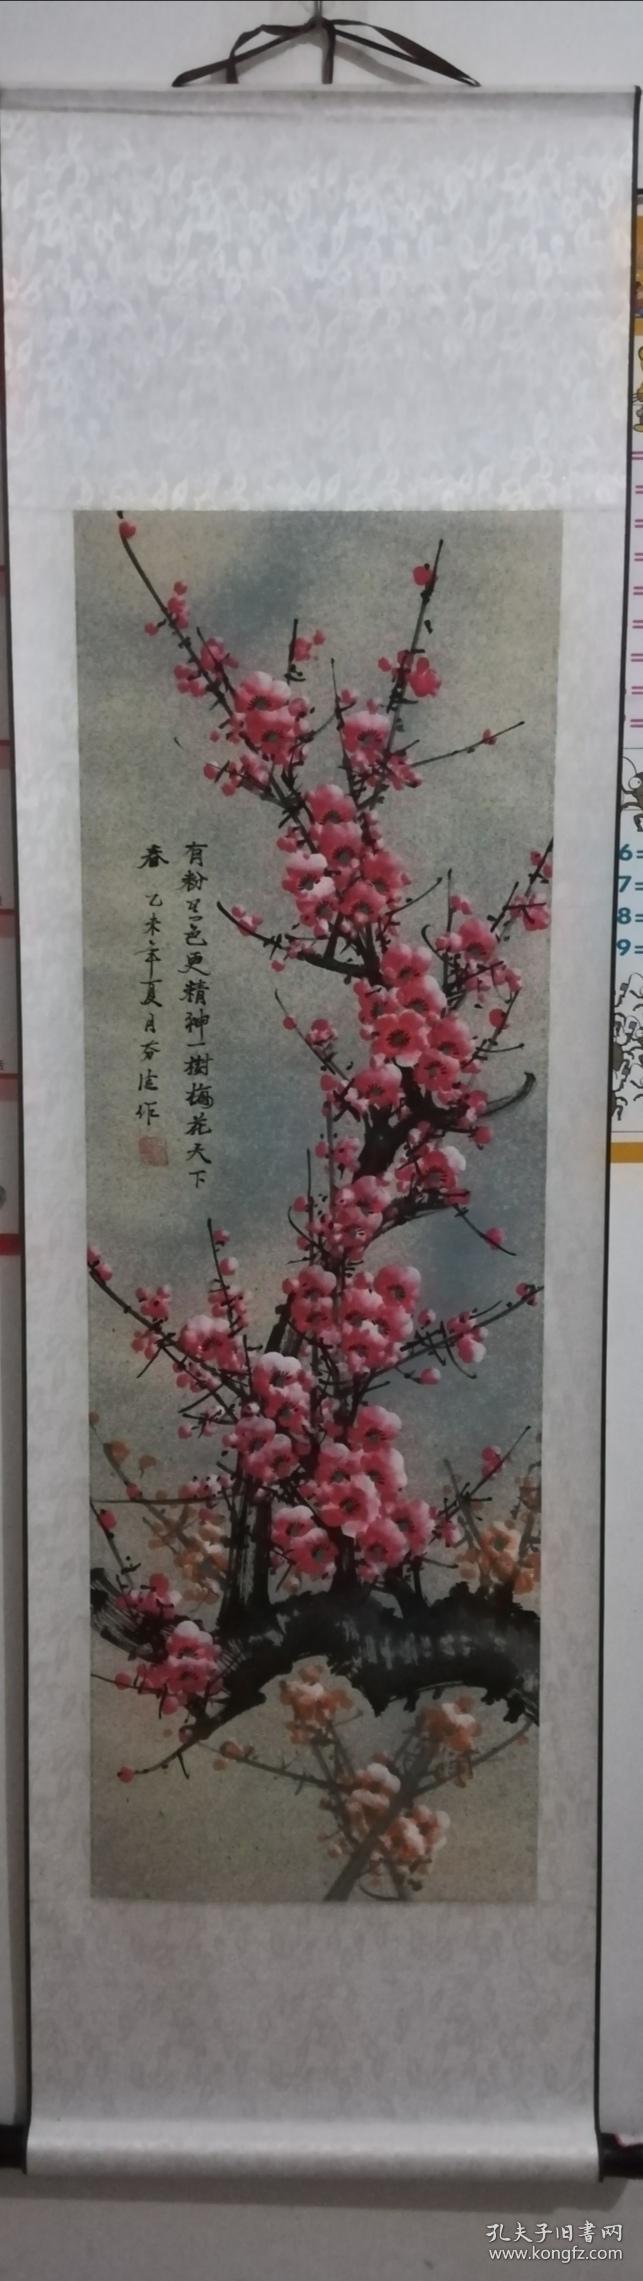 有粉 色更精神一樹梅花天下
春 乙未年夏月 作
6=
7=
8=
9=
孔夫子旧書网
www.kongfz.com